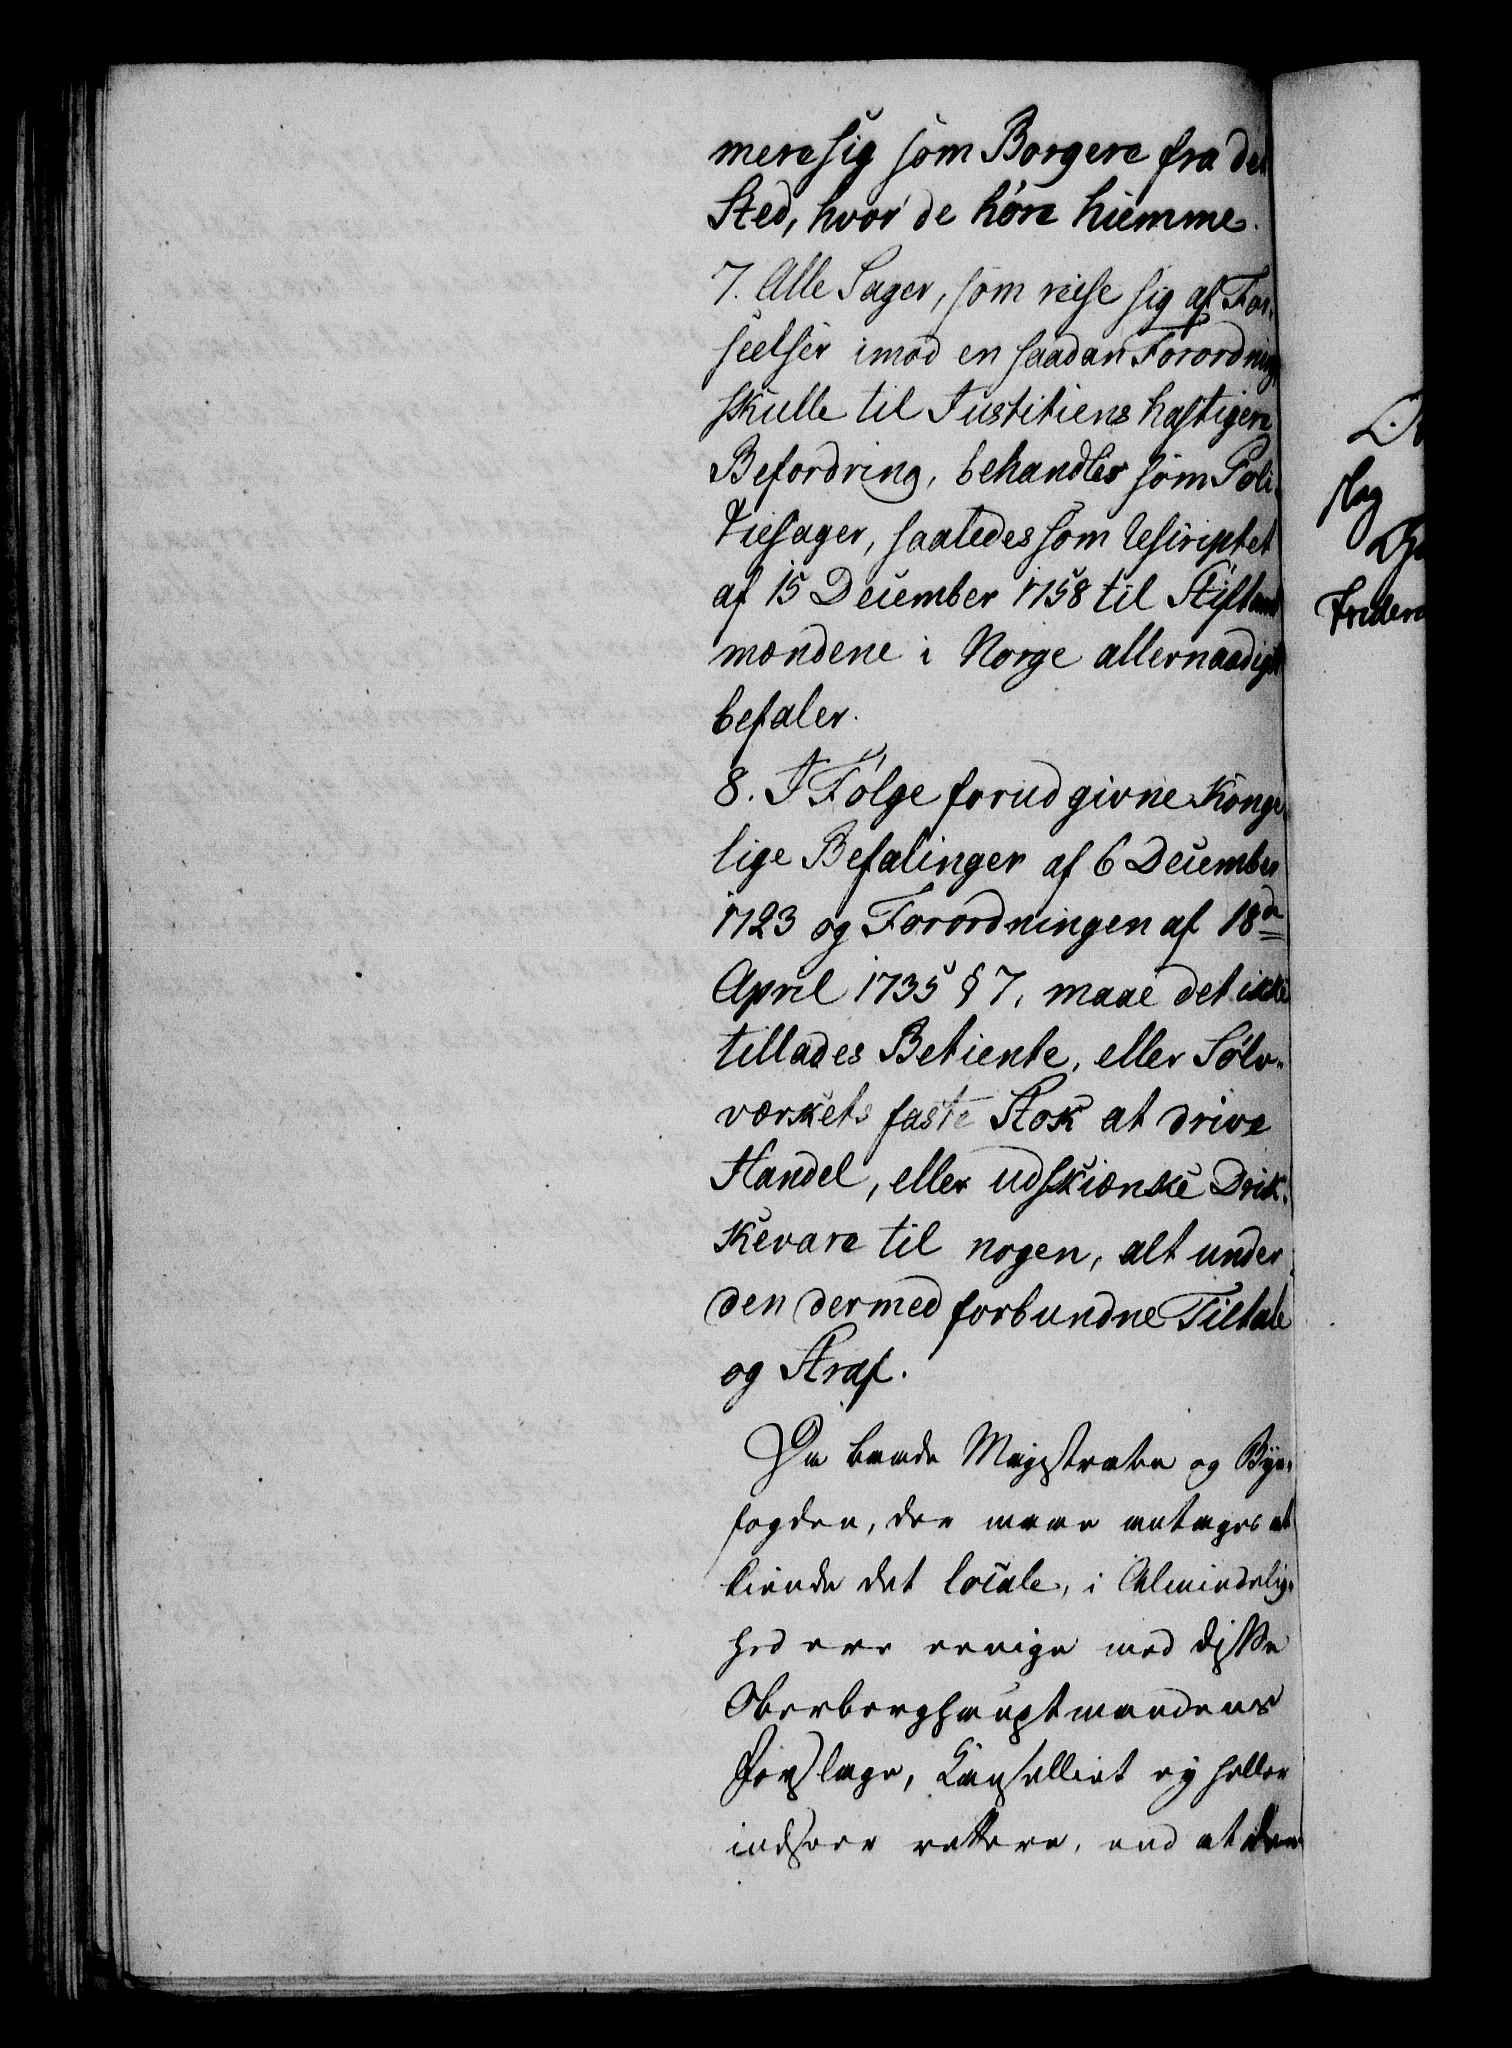 mere sig som Borgere fra det
Sted, hvor de høre hiemme.
7. Alle Sager, som reise sig af For-
seelser imod en saadan Forordning,
skulle til Justitiens hastigere
Befordring, behandles som Poli-
tiesager, saaledes som Rescriptet
af 15 December 1758 til Stiftamt
mændene i Norge allernaadigst
befaler.
8. I Følge forud givne Konge-
lige Befalinger af 6 December
1723 og Forordningen af 18de
April 1735 § 7, maae det ikke
tillades Betiente, eller Sølv-
værkets faste Stok at drive
Handel, eller udskiænke Drik-
kevare til nogen, alt under
den dermed forbundne Tiltale
og Straf.
Da baade Magistraten og Bye-
fogden, der maae antages at
kiende det locale, i Almindelig-
hed ere eenige med disse
Oberberghauptmandens
Forslage, Cancelliet ey heller
indseer rettere, end at den
slag
Frider